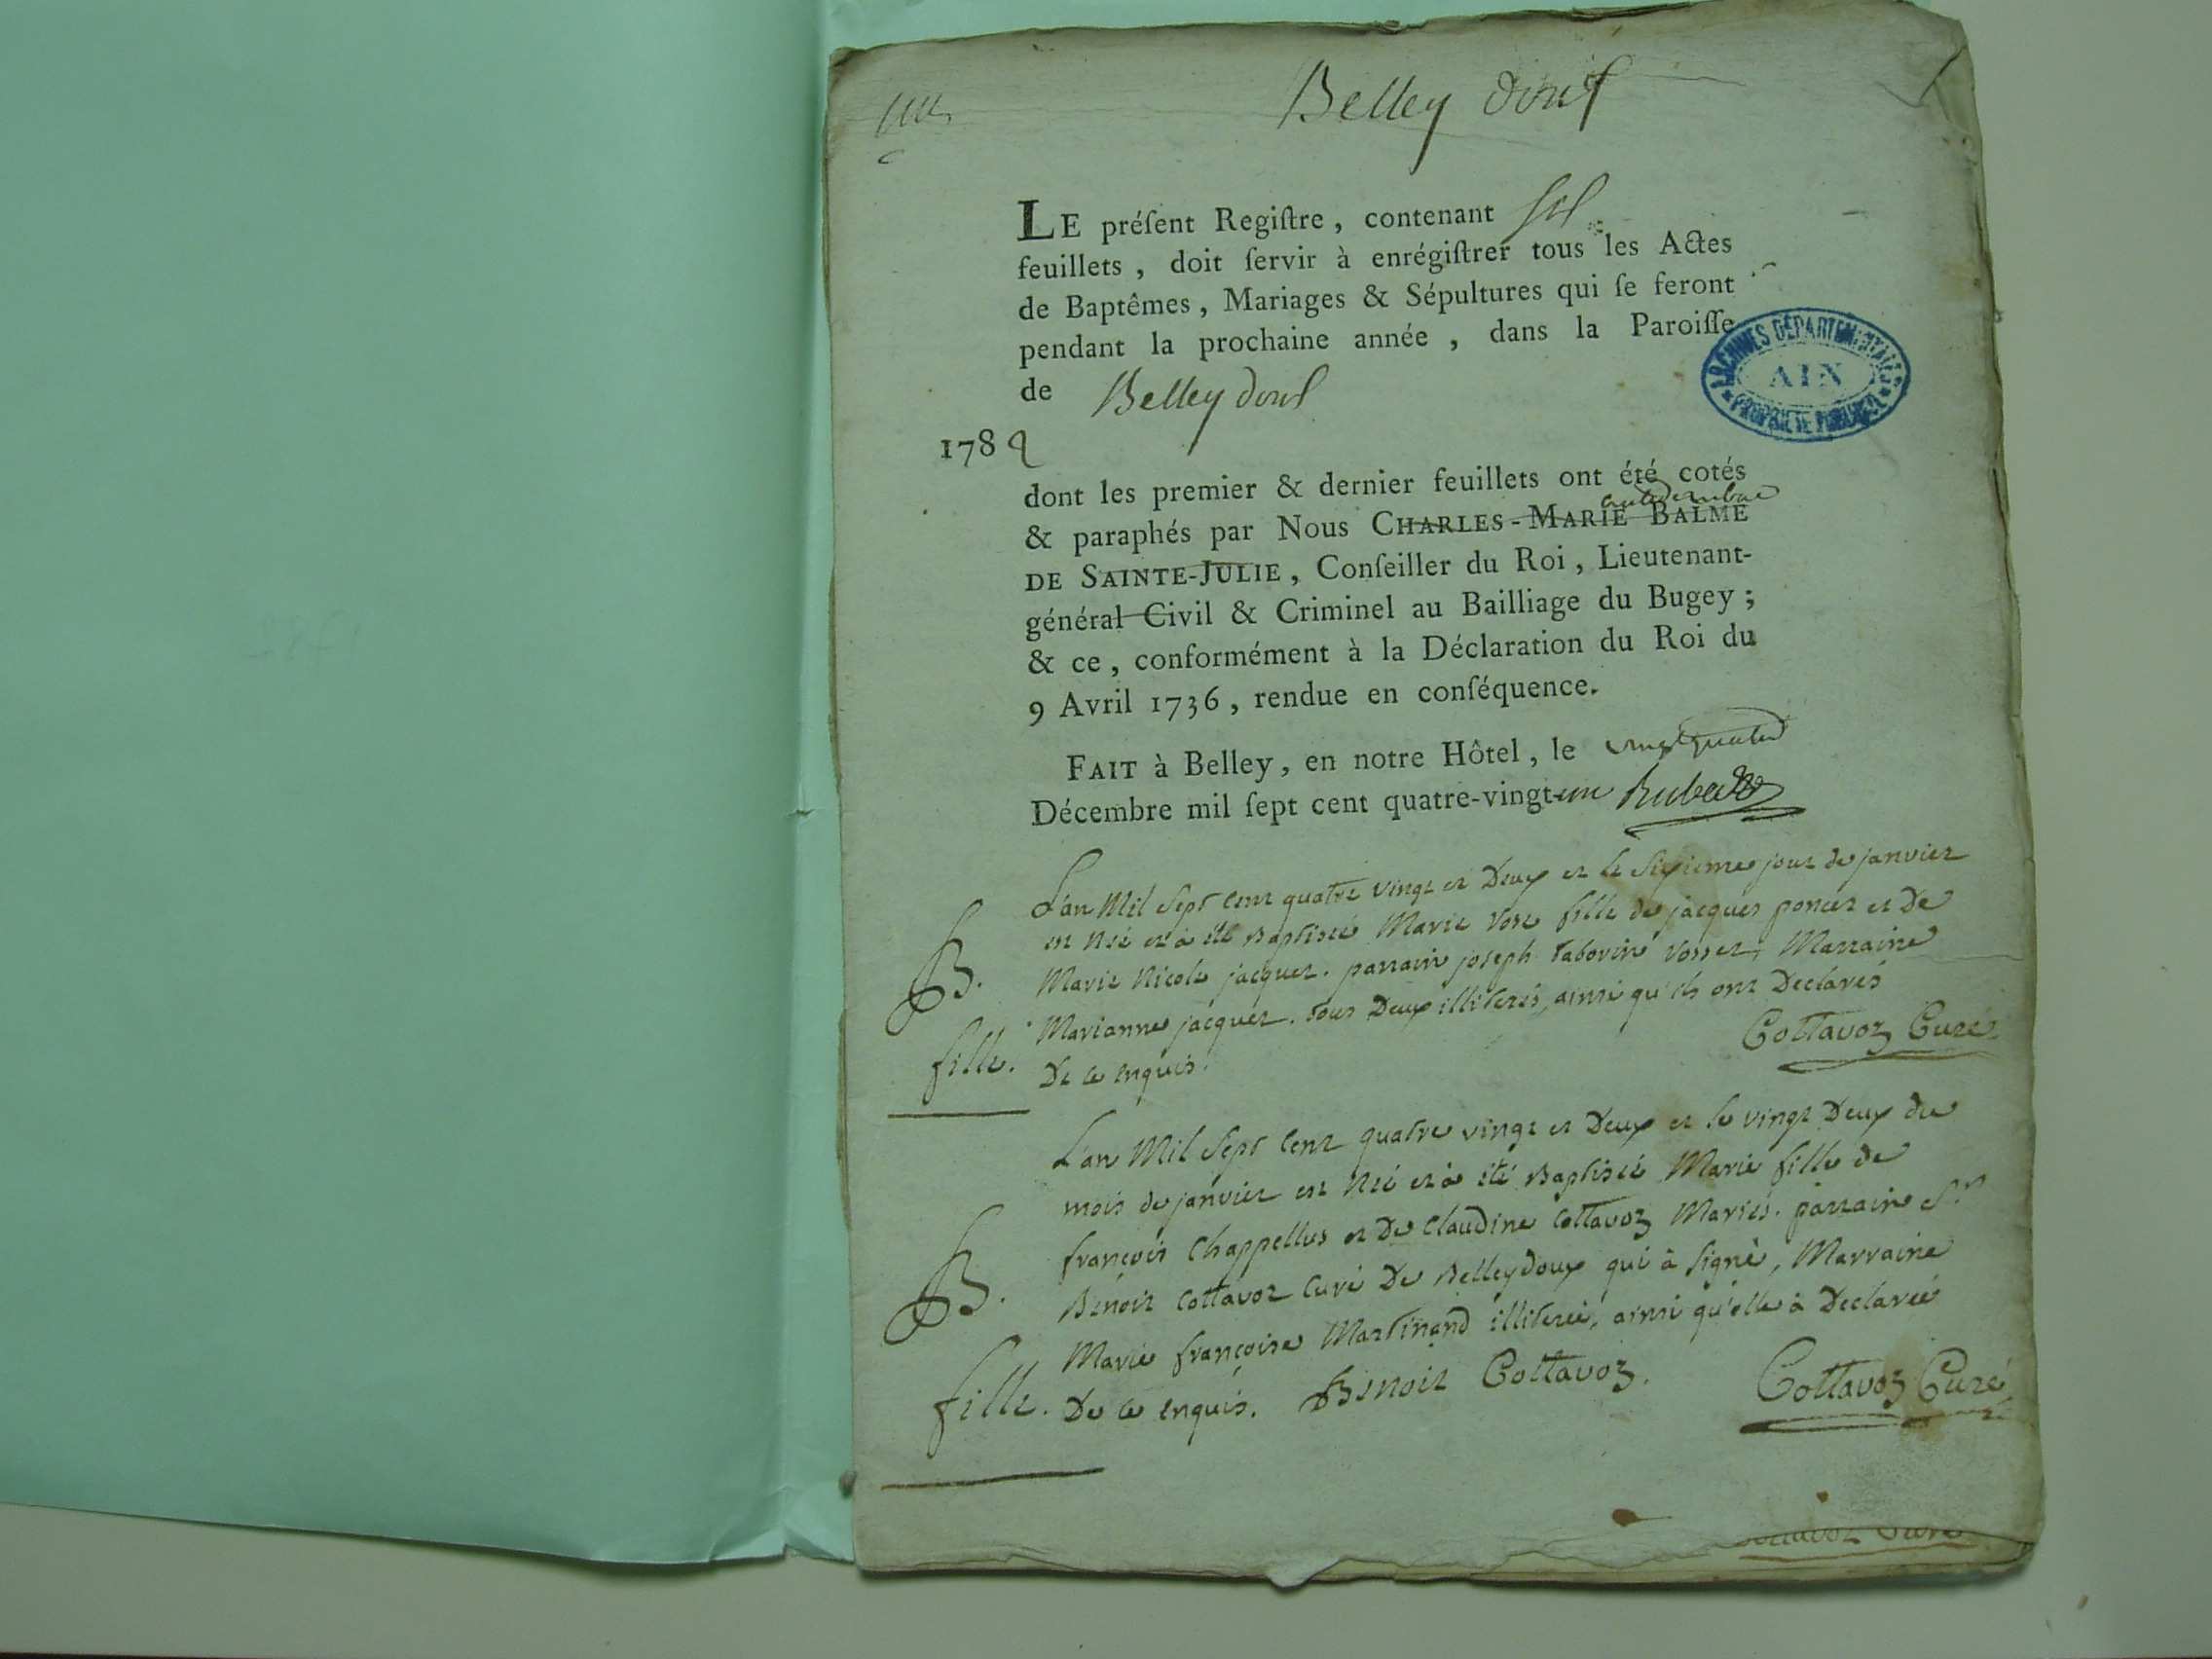 Belley doux
LE préſent Regiſtre, contenant six
feuillets, doit ſervir à enrégiſtrer tous les Actes
de Baptêmes, Mariages & Sépultures qui ſe feront
pendant la prochaine année, dans la Paroiſſe
de Belley doux
ARCHIVES DÉPARTEMENTALES
AIN
PROPRIÉTÉ PUBLIQUE
1782
dont les premier & dernier feuillets ont été cotés
& paraphés par Nous CHARLES-MARIE BALME
DE SAINTE-JULIE, Conſeiller du Roi, Lieutenant-
général Civil & Criminel au Bailliage du Bugey;
& ce, conformément à la Déclaration du Roi du
9 Avril 1736, rendue en conſéquence.
FAIT à Belley, en notre Hôtel, le vingt quatre
Décembre mil ſept cent quatre-vingt-un
L'an Mil Sept Cent quatre vingt et Deux et le sixieme jour de janvier
est Née et à été Baptisée Marie Rose fille de jacques poncet et De
B. Marie Nicole jacquet. parrain joseph tabovin Rosset, Marraine
Marianne jacquet. tous Deux illiterés, ainsi qu'ils ont Declarés
fille. De ce enquis. Cottavoz Curé
L'an Mil Sept Cent quatre vingt et Deux et le vingt Deux du
mois de janvier est Née et à été Baptisée Marie fille de
françois Chappellus et De Claudine Cottavoz Mariés. parrain Sr
B. Benoit Cottavoz Curé De Belleydoux qui à signé, Marraine
Marie françoise Martinand illiterée, ainsi qu'elle à Declarée
fille. De ce enquis. Benoit Cottavoz. Cottavoz Curé
Cottavoz Curé